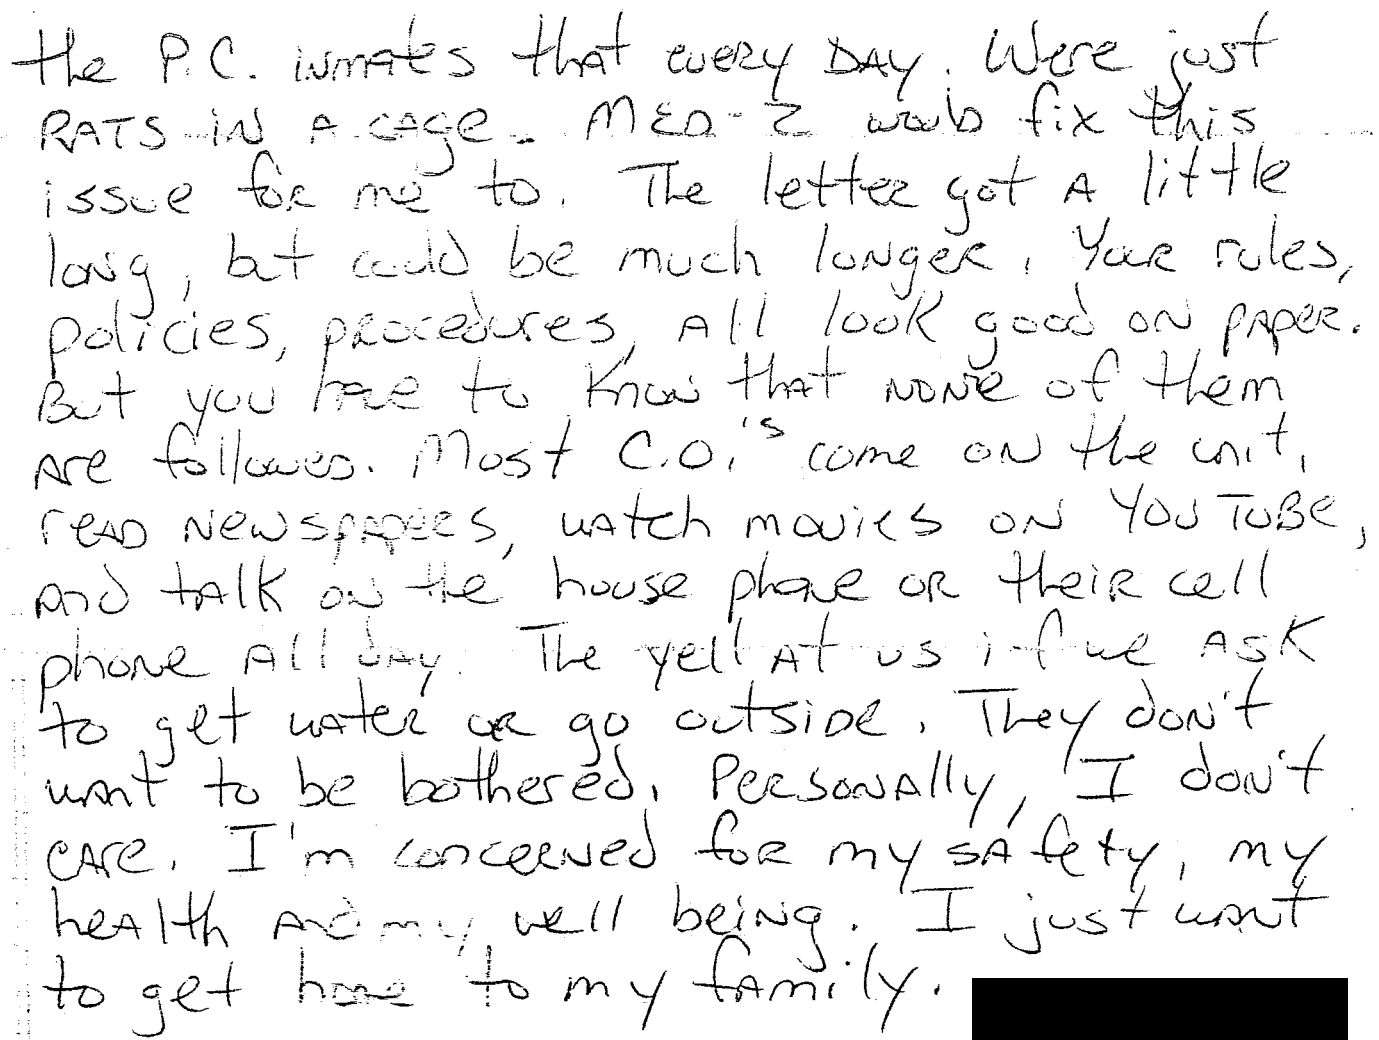 the P.C. inmates that every DAY. Were just
RATS IN A CAGE. MED-2 would fix this
issue for me to. The letter got A little
long, but could be much longer. Your rules,
policies, procedures, All look good on paper.
But you have to know that NONE of them
Are followed. Most C.O.'s come on the unit,
read Newspapers, watch movies on YOUTUBE,
and talk on the house phone or their cell
phone All day. The yell At us if we ASK
to get water or go outside. They don't
want to be bothered. Personally, I don't
care. I'm concerned for my safety, my
health and my well being. I just want
to get home to my family.